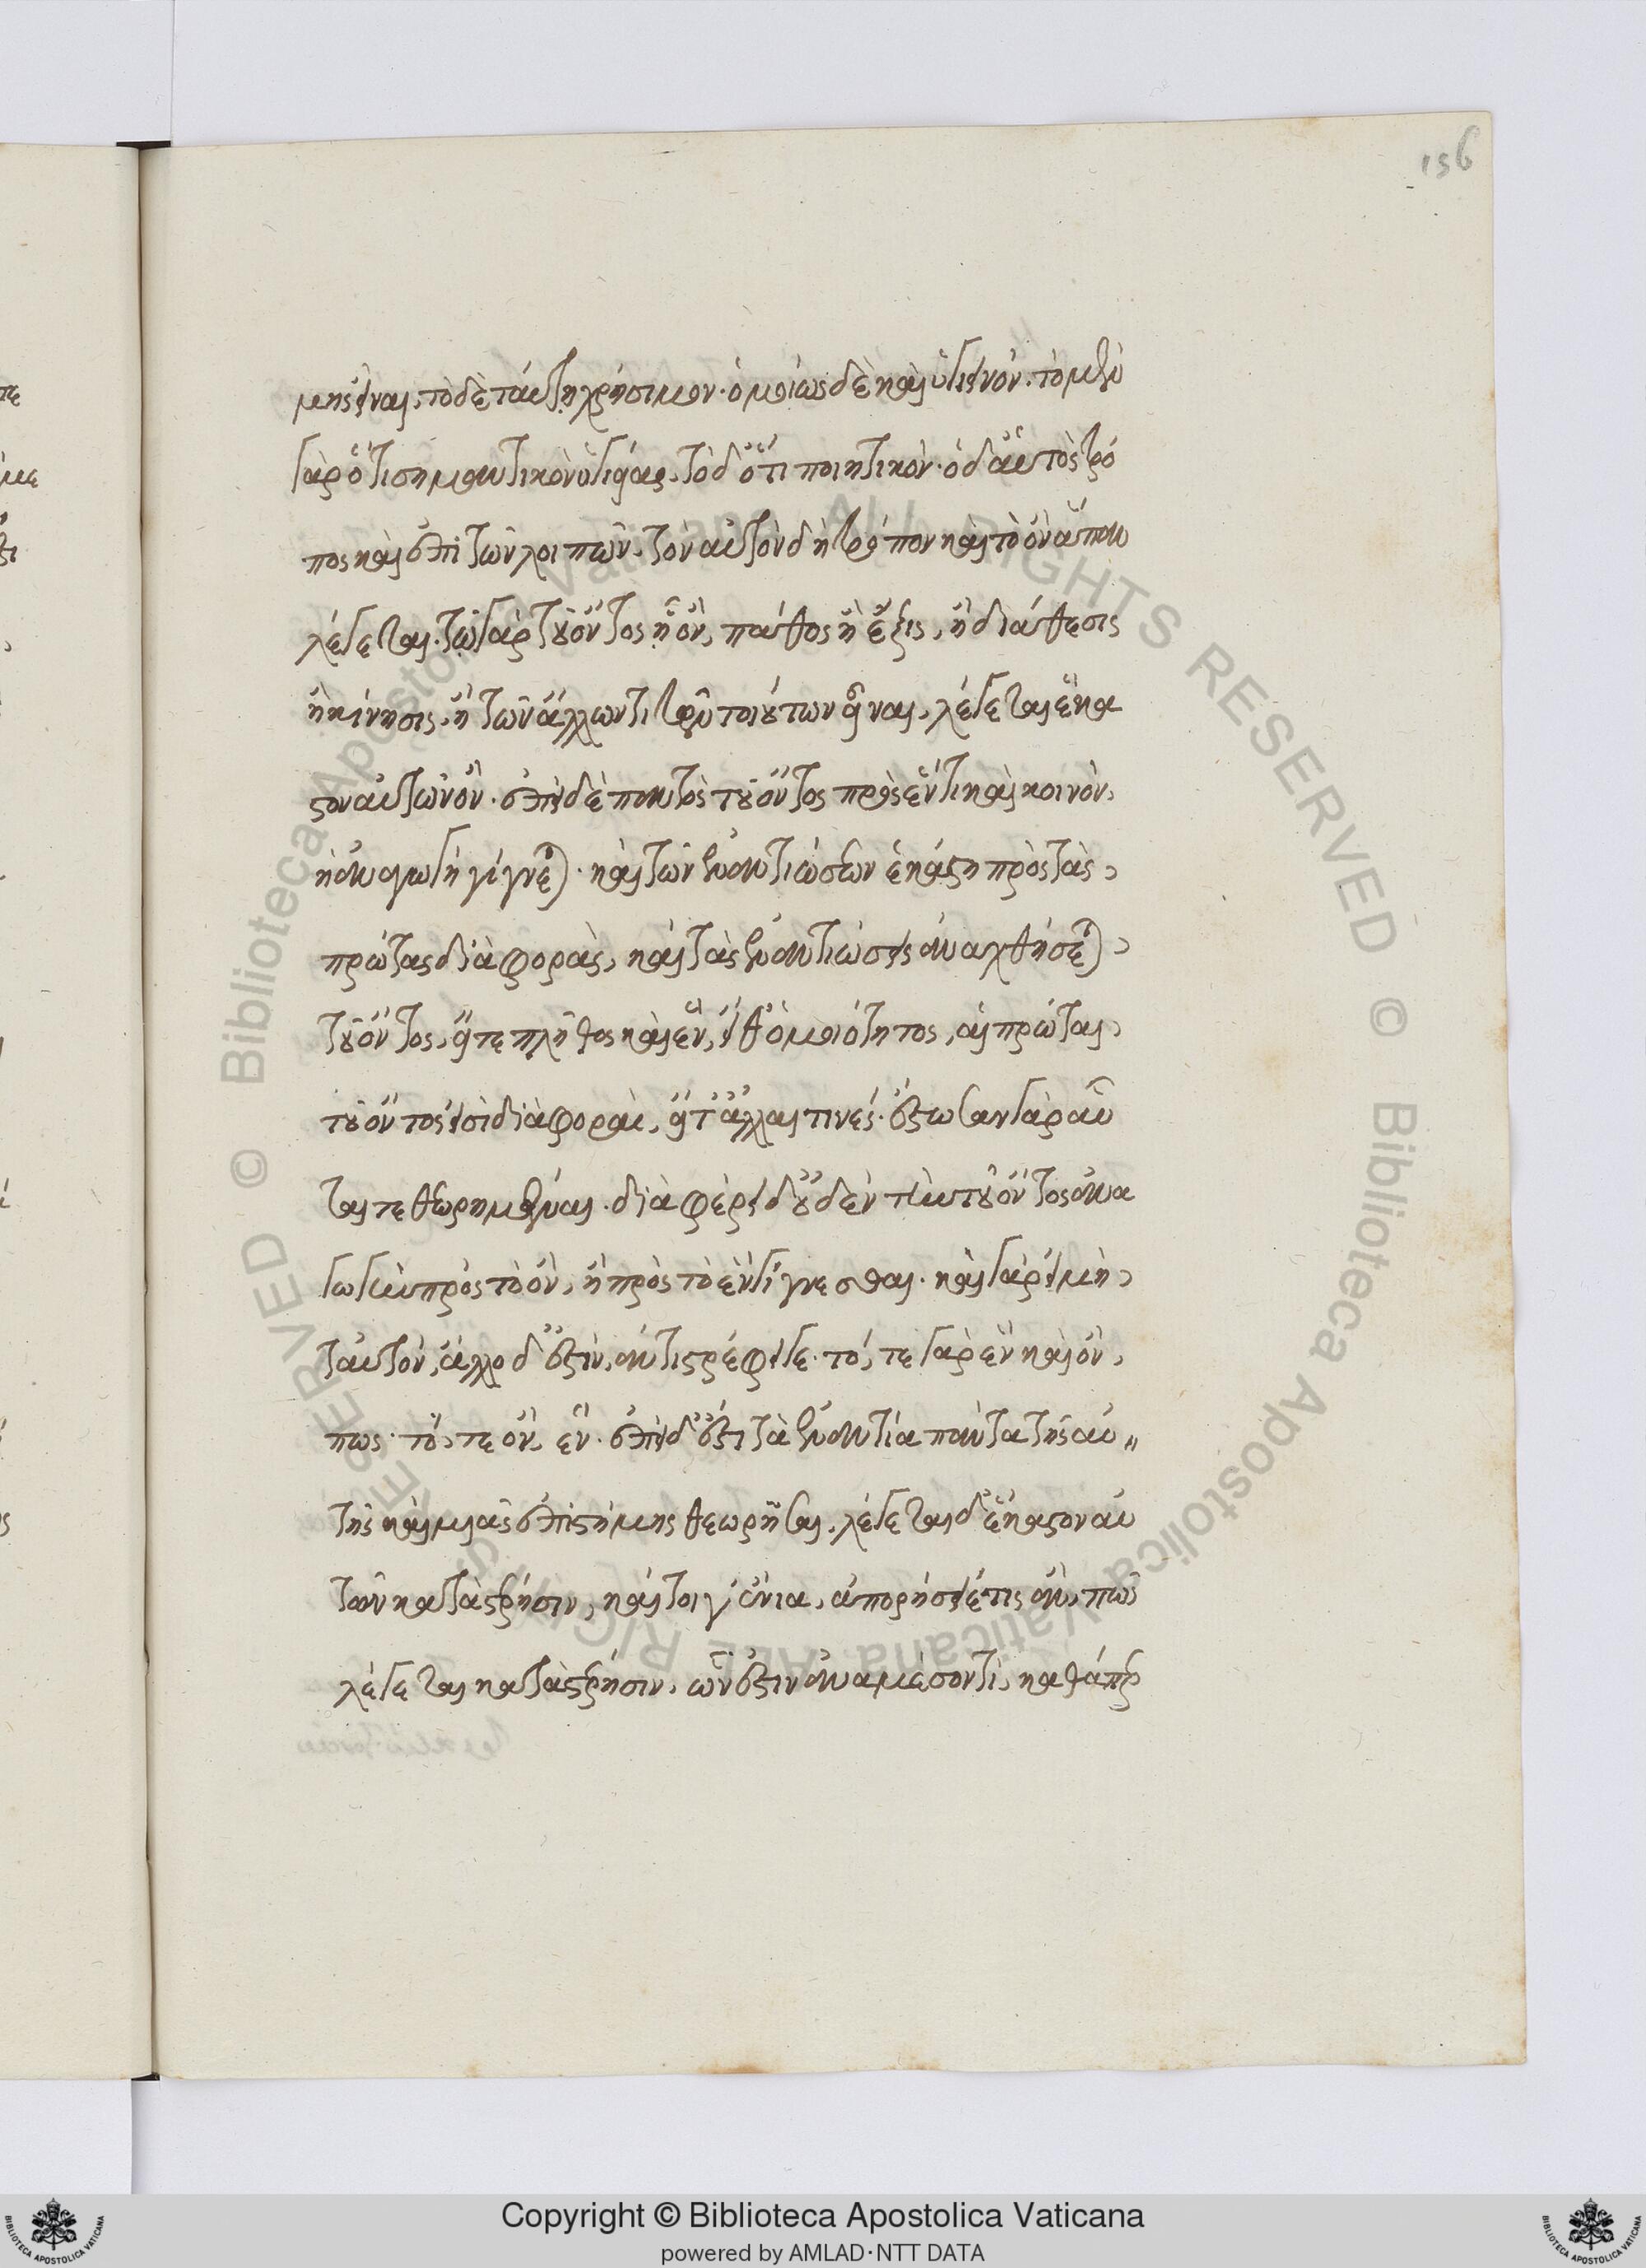 156
μης εἶναι, τὸ δὲ ταύτῃ χρήσιμον· ὁμοίως δὲ καὶ ὑγιεινόν. τὸ μὲν
γὰρ ὅτι σημαντικὸν ὑγιείας, τὸ δ' ὅτι ποιητικόν· ὁ δ' αὐτὸς τρό
πος καὶ ἐπὶ τῶν λοιπῶν. τὸν αὐτὸν δὴ τρόπον καὶ τὸ ὂν ἅπαν
λέγεται. τῷ γὰρ τοῦ ὄντος ᾗ ὂν, πάθος ἢ ἕξις, ἢ διάθεσις
ἢ κίνησις, ἢ τῶν ἄλλων τι τῶν τοιούτων εἶναι, λέγεται ἕκα
στον αὐτῶν ὄν. ἐπεὶ δὲ παντὸς τοῦ ὄντος πρὸς ἕν τι καὶ κοινὸν,
ἡ ἀναγωγὴ γίγνεται. καὶ τῶν ἐναντιώσεων ἑκάστη πρὸς τὰς
πρώτας διαφορὰς, καὶ τὰς ἐναντιώσεις ἀναχθήσεται
τοῦ ὄντος, εἴτε πλῆθος καὶ ἕν, εἴθ' ὁμοιότητος, αἱ πρῶται
τοῦ ὄντος εἰσὶ διαφοραὶ, εἴτ' ἄλλαι τινές· ἔστωσαν γὰρ αὗ
ται τεθεωρημέναι. διαφέρει δ' οὐδὲν τὴν τοῦ ὄντος ἀνα
γωγὴν πρὸς τὸ ὂν, ἢ πρὸς τὸ ἓν γίγνεσθαι. καὶ γὰρ εἰ μὴ
ταὐτόν, ἄλλο δ' ἐστὶν, ἀντιστρέφει γε. τό, τε γὰρ ἓν καὶ ὄν,
πως· τό, τε ὂν, ἕν. ἐπεὶ δ' ἐστὶ τὰ ἐναντία πάντα τῆς αὐ
τῆς καὶ μιᾶς ἐπιστήμης θεωρῆσαι. λέγεται δ' ἕκαστον αὐ
τῶν κατὰ στέρησιν, καίτοι γ' ἔνια, ἀπορήσειέ τις ἂν, πῶς
λέγεται κατὰ στέρησιν, ὧν ἐστιν ἀνὰ μέσον τι, καθάπερ
Copyright © Biblioteca Apostolica Vaticana
powered by AMLAD·NTT DATA